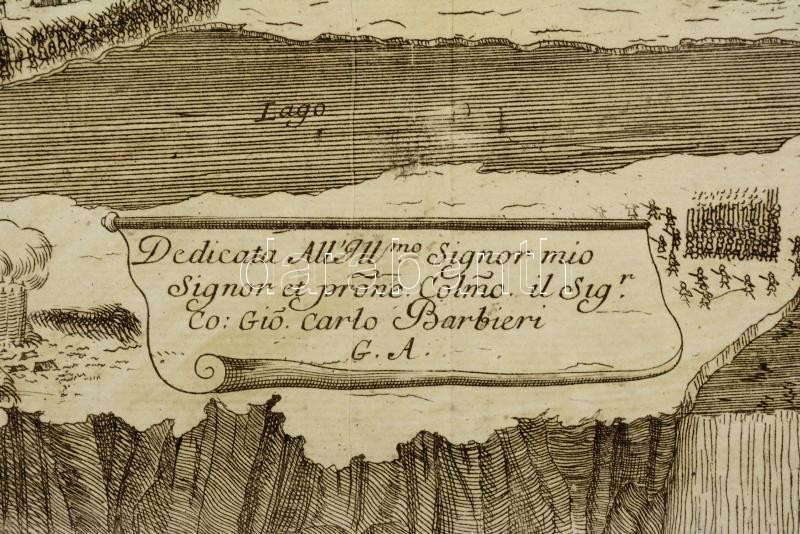 Lago
Dedicata All'Ill.mo Signor mio
Signor et prõne. Colm̃o. il Sig.r
Co: Giõ. Carlo Barbieri
G. A.